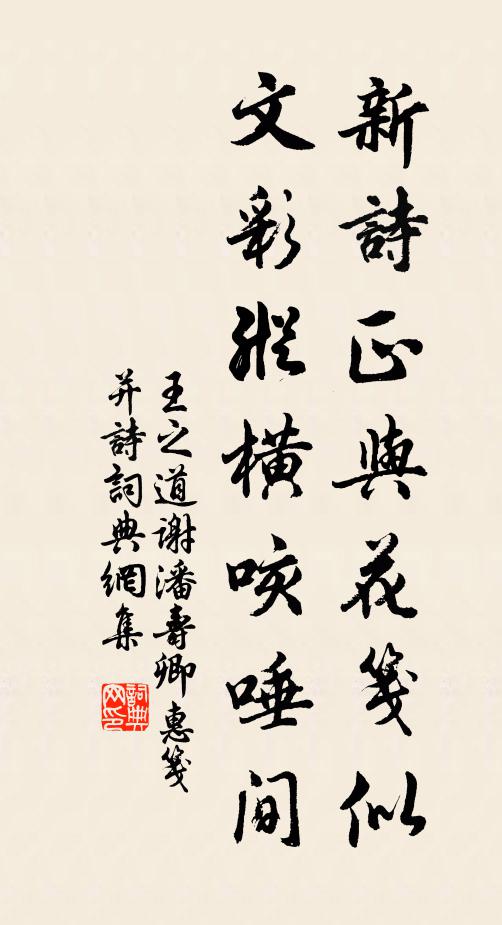 新詩正與花箋似
文彩縱橫咳唾間
王之道謝潘壽卿惠箋
并詩詞典網集
詞典
网印